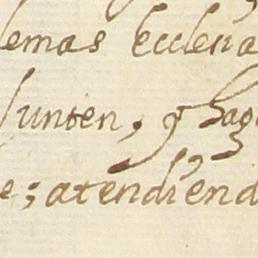 lemas Ecclesia
Junten, y hag
e; atendiend